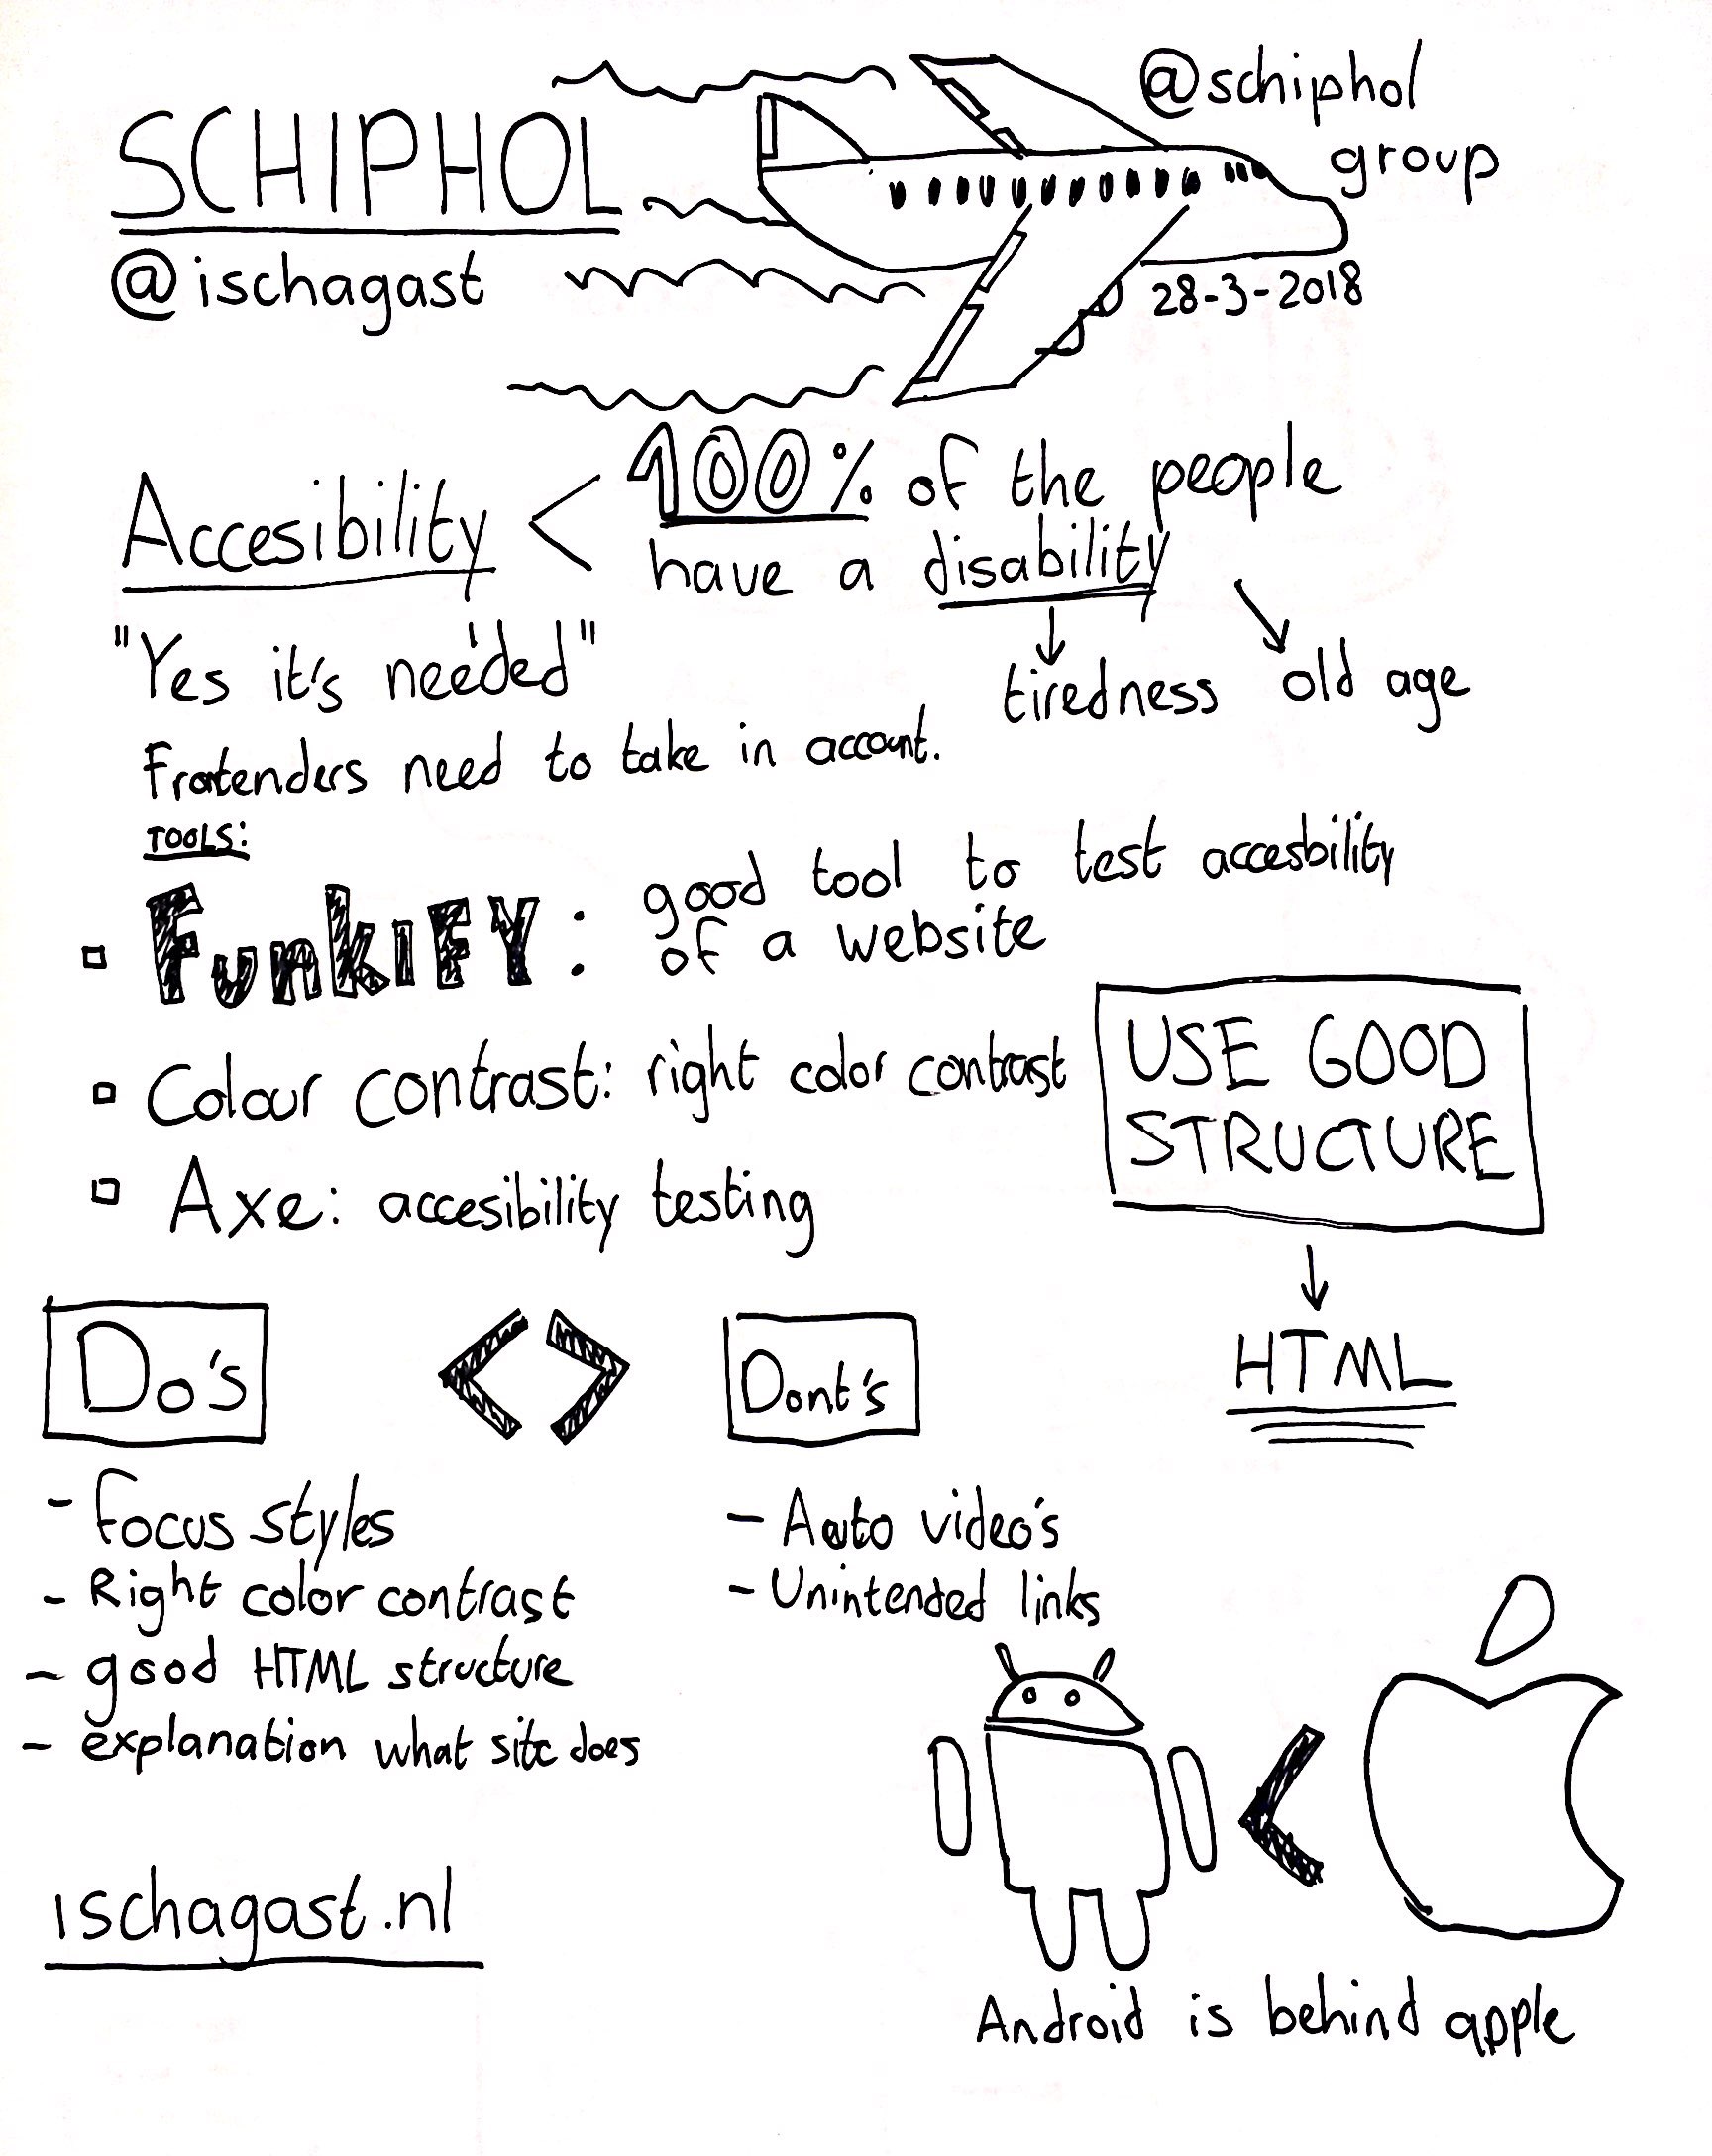 SCHIPHOL
@schiphol
group
@ischagast
28-3-2018
Accesibility < 100% of the people
have a disability
tiredness old age
"Yes it's needed"
Frontenders need to take in account.
TOOLS:
FunkIFY: good tool to test accesbility
of a website
Colour contrast: right color contrast
Axe: accesibility testing
USE GOOD
STRUCTURE
HTML
Do's <> Dont's
- Focus styles
- Right color contrast
- good HTML structure
- explanation what site does
- Auto video's
- Unintended links
<
Android is behind apple
ischagast.nl